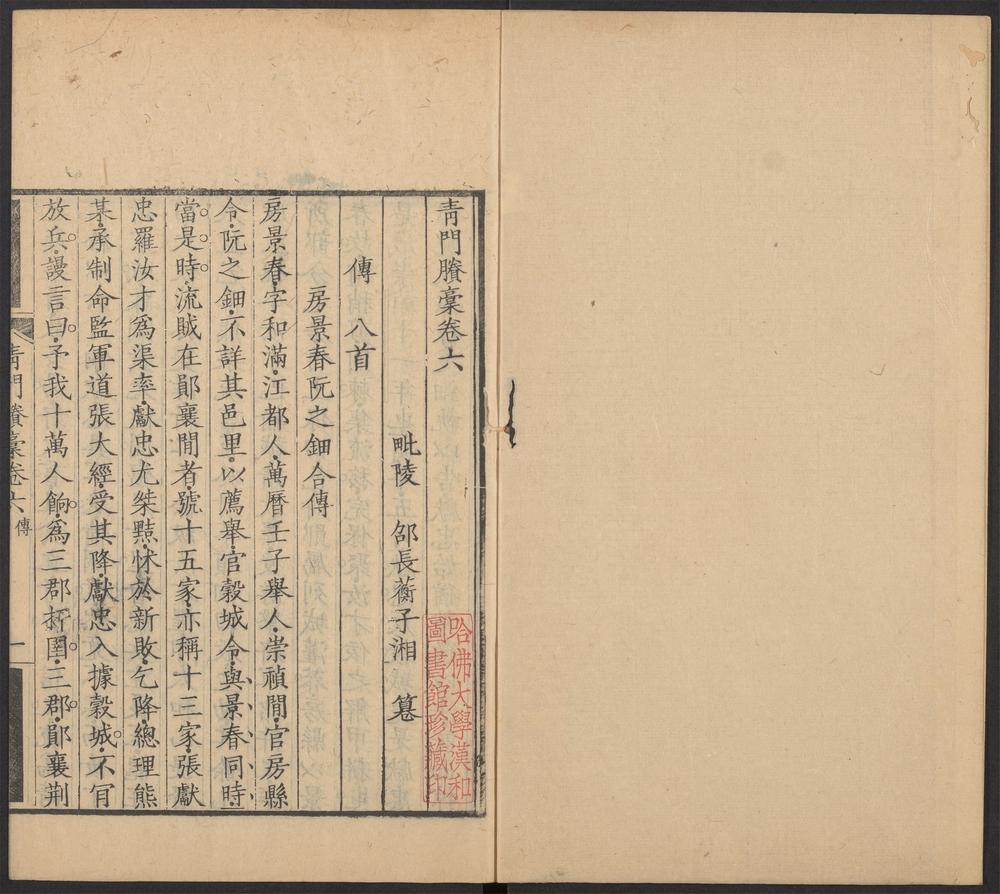 青門賸稾卷六
毗陵 邵長蘅子湘 篹
傳八首
房景春阮之鈿合傳
房景春字和滿江都人萬曆壬子舉人崇禎間官房縣
令阮之鈿不詳其邑里以薦舉官穀城令與景春同時
當是時流賊在鄖襄間者號十五家亦稱十三家張獻
忠羅汝才爲渠率獻忠尤桀黠怵於新敗乞降總理熊
某承制命監軍道張大經受其降獻忠入據穀城不肎
放兵謾言曰予我十萬人餉爲三郡扞圉三郡鄖襄荆
青門賸稾卷六 傳 一
哈佛大學漢和
圖書館珍藏印